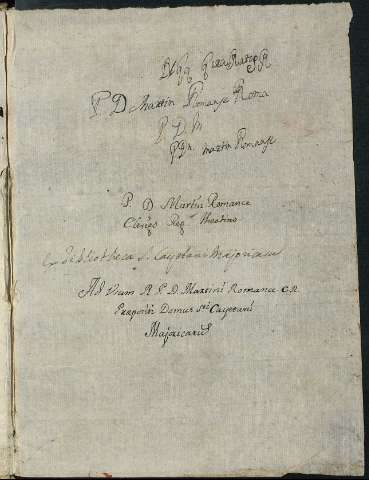 P. D. Martin Romanse Roma
P. D. M
P. Dn. martin Romanse
P. D. Martin Romance
Clerigo Reg. theatino
Ex Bibliotheca S. Cayetani Majoricae
Ad Usum R. P. D. Martini Romance C.R.
Praepositi Domus Sti Cayetani
Majoricarum